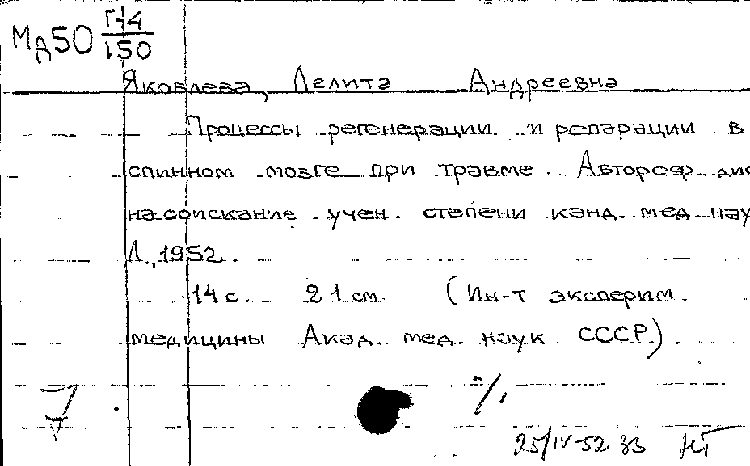 Мд50 Г-4/150
Яковлева, Делита Андреевна
Процессы регенерации и репарации в
спинном мозге при травме. Автореф. дис
на соискание учен. степени канд. мед. нау
Л., 1952.
14 с. 21 см. (Ин-т эксперим.
медицины Акад. мед. наук СССР)
25/IV-52